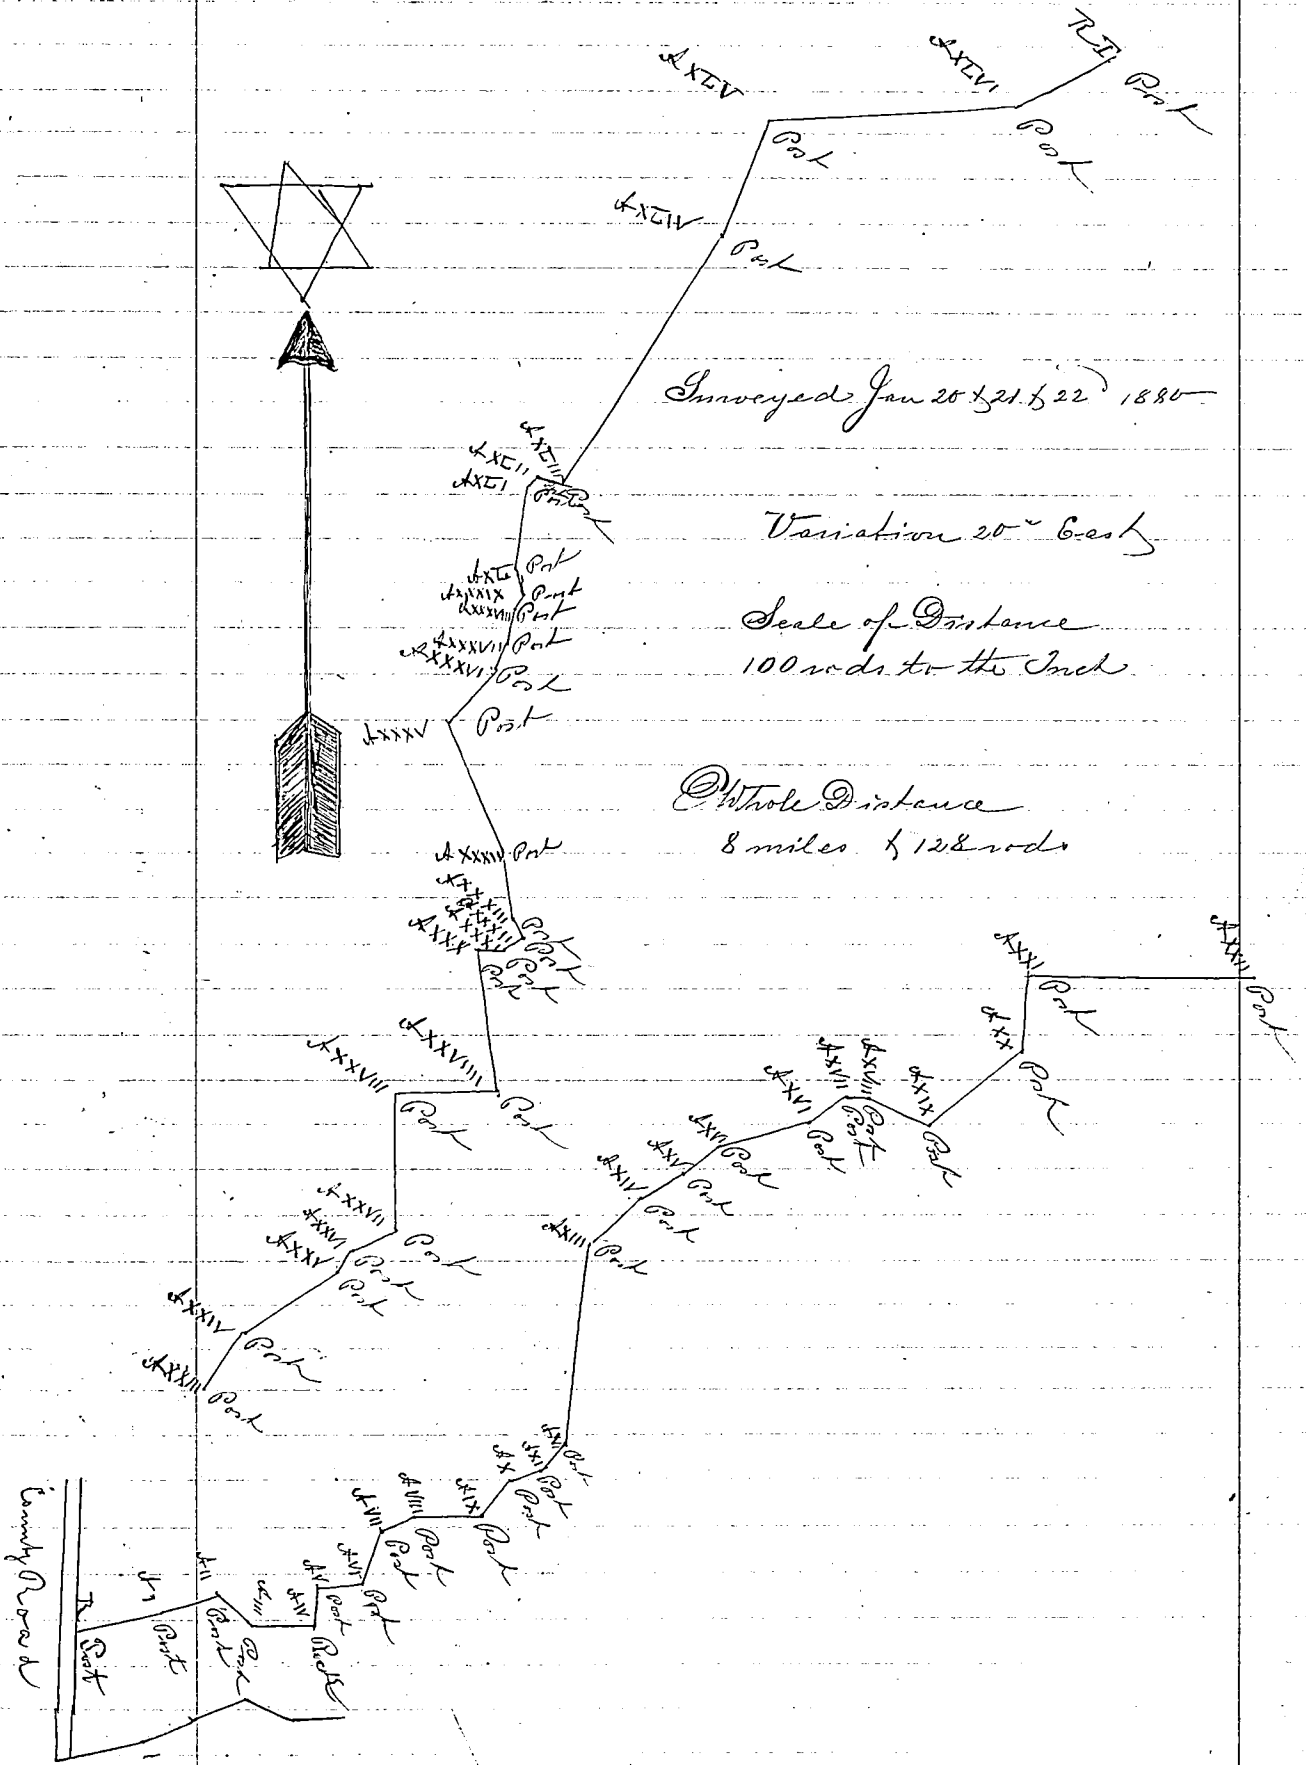 R I
Post
AXLVI
Post
AXLV
Post
AXLIV
Post
Surveyed Jan 20 & 21 & 22d 1880
AXLIII
Post
AXLII
Post
AXLI
Variation 20° East
AXL Post
AXXXIX Post
AXXXVIII Post
Scale of Distance
100 rods to the Inch
AXXXVII Post
AXXXVI Post
AXXXV Post
Whole Distance
8 miles & 128 rods
AXXXIV Post
AXXXIII Post
AXXXII Post
AXXXI Post
AXXX Post
AXXII
Post
AXXI
Post
AXX
Post
AXXVIIII
Post
AXXVIII
Post
AXIX
Post
AXVIII
Post
AXVII
Post
AXVI
Post
AXVI
Post
AXV
Post
AXIV
Post
AXIII
Post
AXXVII
Post
AXXVI
Post
AXXV
Post
AXXIV
Post
AXXIII
Post
AXI
Post
AXI
Post
AX
Post
AIX
Post
AVIII
Post
AVII
Post
AVI
Post
AV
Post
AIV
Rock
AIII
Post
AII
Post
AI
Post
R
Post
County Road